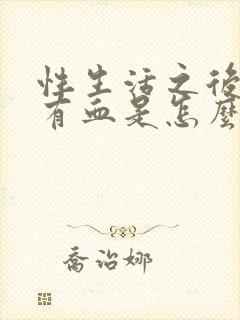 性生活之後
有血是怎麼
喬治娜